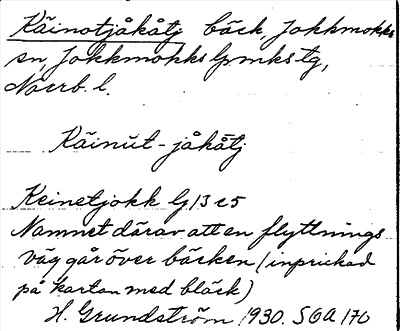 Käinotjåkåtj bäck, Jokkmokks
sn, Jokkmokks lpmkstg,
Norrb. l.
Käinūt-jåkātj
Keinetjokk lg 13 c5
Namnet därav att en flyttnings
väg går över bäcken (inprickad
på kartan med bläck)
H. Grundström 1930. SGA 170